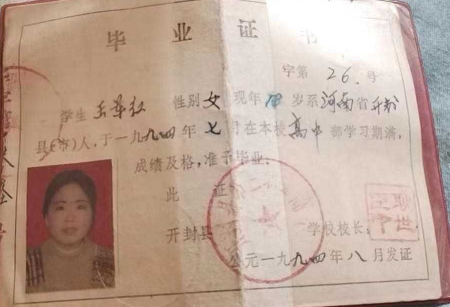 毕业证书
字第 26. 号
学生 性别 女 现年 岁系 河南省 开封
县(市)人,于一九九四年七月在本校高中部学习期满,
成绩及格,准予毕业.
此 证
开封县 学校校长
公元一九九四年八月发证